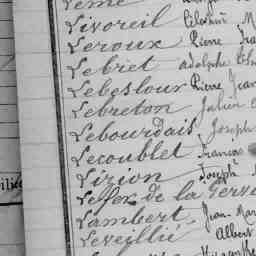 Lemé
Livoreil Célestin M
Leroux Pierre Fra
Lebret Adolphe
Lebeslour Pierre Jean
Lebreton Julien
Lebourdais Joseph
Lecoublet François
Lizion Joseph
de la
Lambert Jean Mar
Leveillié Albert